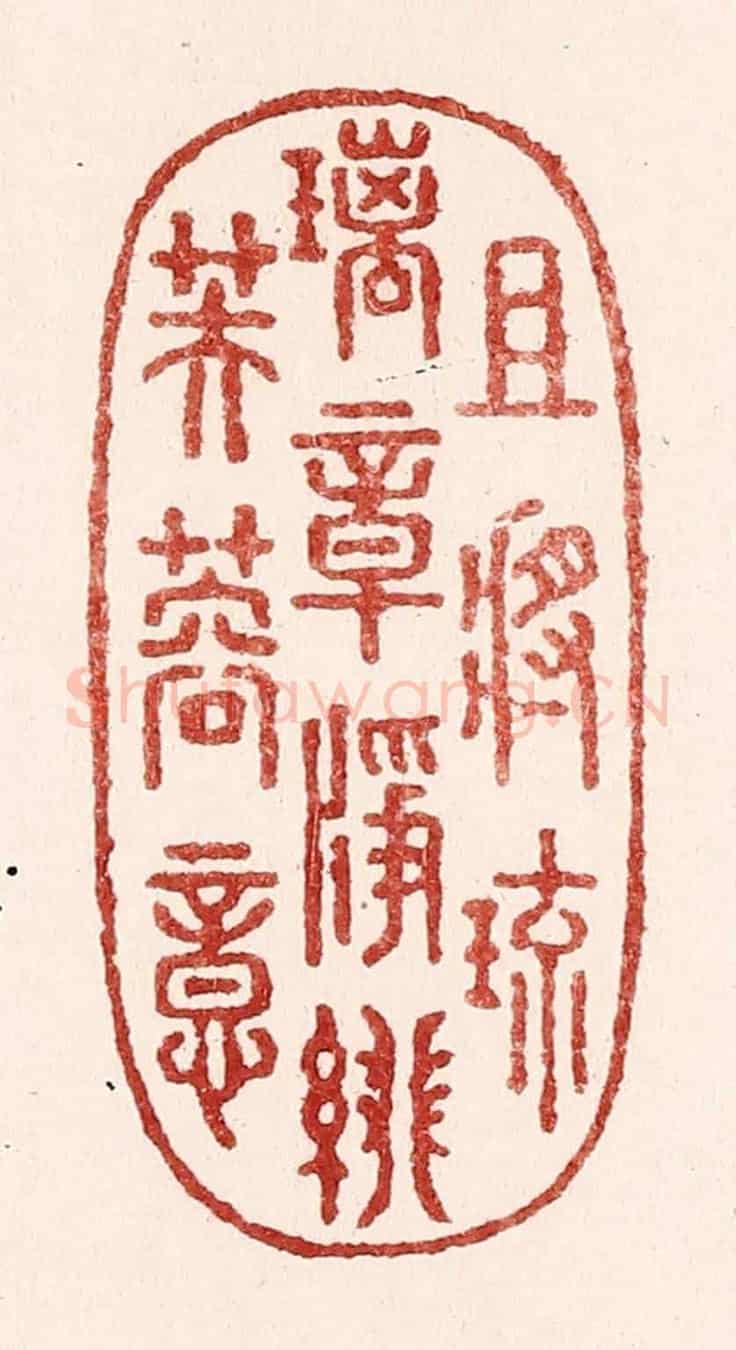 且將琉
璃章淨緋
芙蓉意
Shufawang.CN